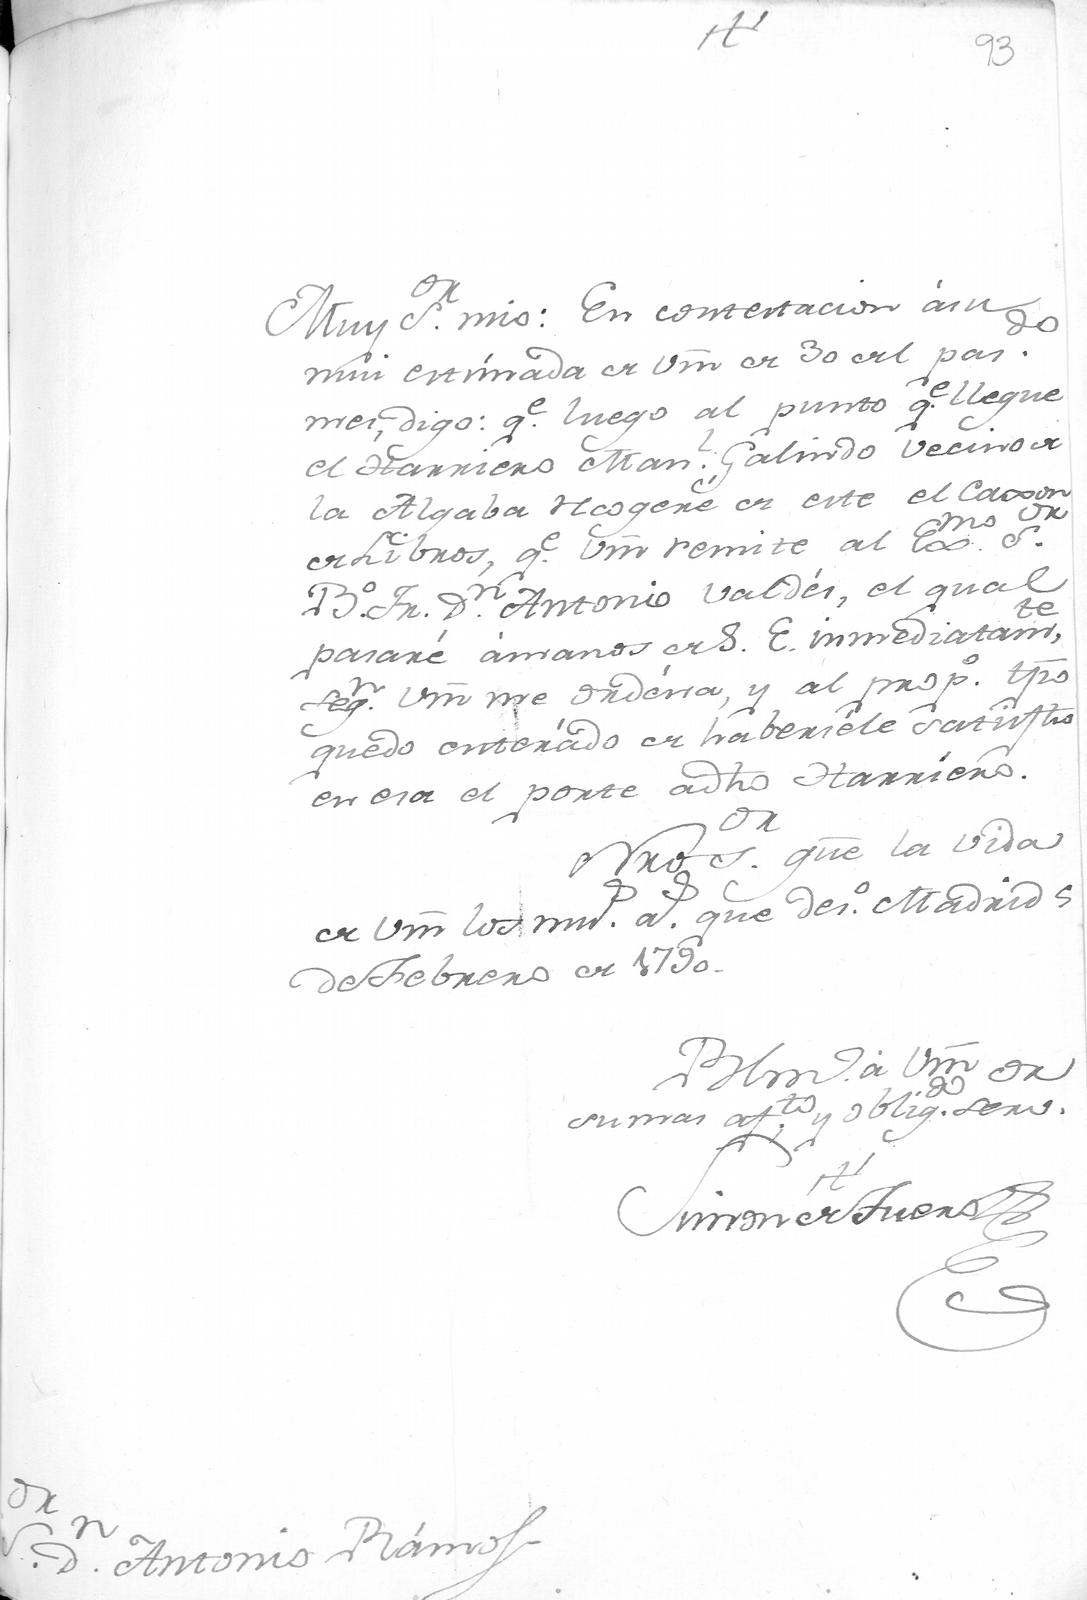 93
Muy S.or mio: En contestacion ásu
mui estimada de Vm̃ de 30 del pas.do
mes, digo: q.e luego al punto q.e llegue
el Harriero Man.l Galindo vecino de
la Algaba recogeré de este el Caxon
de Libros, q.e Vm̃ remite al Exmo. S.or
B.o Fr. D.n Antonio Valdés, el qual
pasaré ámanos de S. E. inmediatam.te,
seg.n Vm̃ me ordéna, y al prop.o tp̃o
quedo enterádo de habersele satisfho
en esa el porte adho Harriero.
Nro S.or gũe la vida
de Vm̃ los mu.s a.s que des.o Madrid 5
de Febrero de 1790.
Blm.o á Vm̃ su
mas af.to y oblig.do serv.
Simon de Fuero
S.or D.n Antonio Rámos